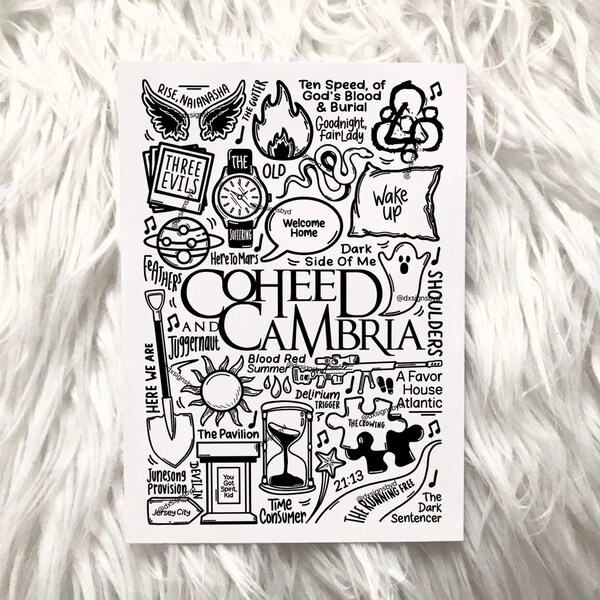 RISE, NAIANASHA
THE GUTTER
Ten Speed, of
God's Blood
& Burial
Goodnight,
Fair Lady
OLD
THREE
EVILS
THE
SUFFERING
Wake
up
Welcome
Home
Here To Mars
Dark
Side Of Me
FEATHERS
@dxsignsbyd
SHOULDERS
COHEED
AND CAMBRIA
HERE WE ARE
Juggernaut
Blood Red
Summer
Delirium
TRIGGER
A Favor
House
Atlantic
THE CROWING
The Pavilion
You
Got
Spirit,
Kid
Junesong
Provision
Jersey City
Time
Consumer
21:13
THE RUNNING FREE
The
Dark
Sentencer